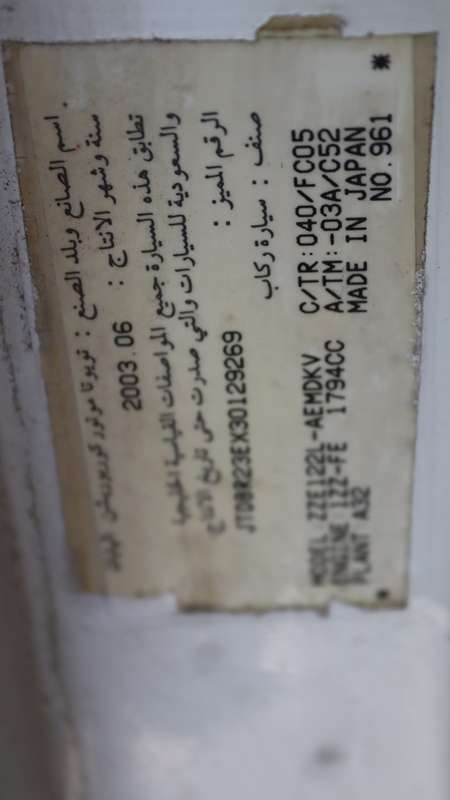 اسم الصانع وبلد الصنع : تويوتا موتور كوربوريشن اليابان
سنة وشهر الانتاج : 2003.06
تطابق هذه السيارة جميع المواصفات القياسية الخليجية
والسعودية للسيارات والتي صدرت حتى تاريخ الانتاج
الرقم المميز : JTDBR23EX30129269
صنف : سيارة ركاب
MODEL ZZE122L-AEMDKV C/TR:040/FC05
ENGINE 1ZZ-FE 1794CC A/TM:-03A/C52
PLANT A32 MADE IN JAPAN
NO.961